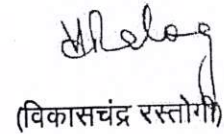 (विकासचंद्र रस्तोगी)